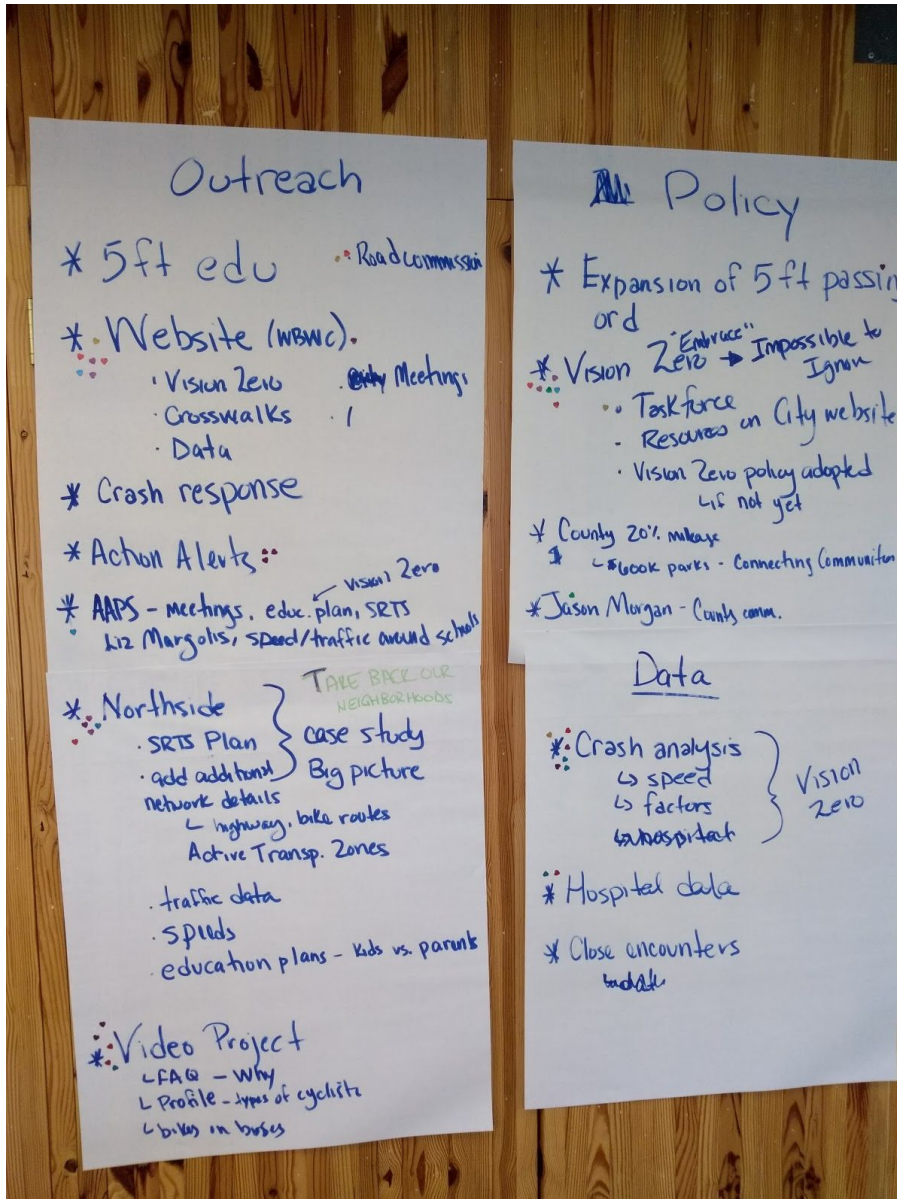 Outreach
* 5ft edu
Road commission
* Website (WBWC)
· Vision Zero
· Crosswalks
· Data
· Meetings
* Crash response
* Action Alerts
vision Zero
* AAPS - meetings, educ. plan, SRTS
Liz Margolis, speed/traffic around schools
TAKE BACK OUR
NEIGHBORHOODS
* Northside
· SRTS Plan
· add additional
network details
case study
Big picture
highway, bike routes
Active Transp. Zones
· traffic data
· speeds
· education plans - kids vs. parents
* Video Project
FAQ - Why
Profile - types of cyclists
bikes on buses
Policy
* Expansion of 5ft passin
ord
* Vision Zero "Embrace" → Impossible to
Ignore
· Taskforce
· Resources on City website
· Vision Zero policy adopted
if not yet
* County 20%
$600K parks - Connecting Communities
* Jason Morgan - County comm.
Data
* Crash analysis
↳ speed
↳ factors
Vision
Zero
* Hospital data
* Close encounters